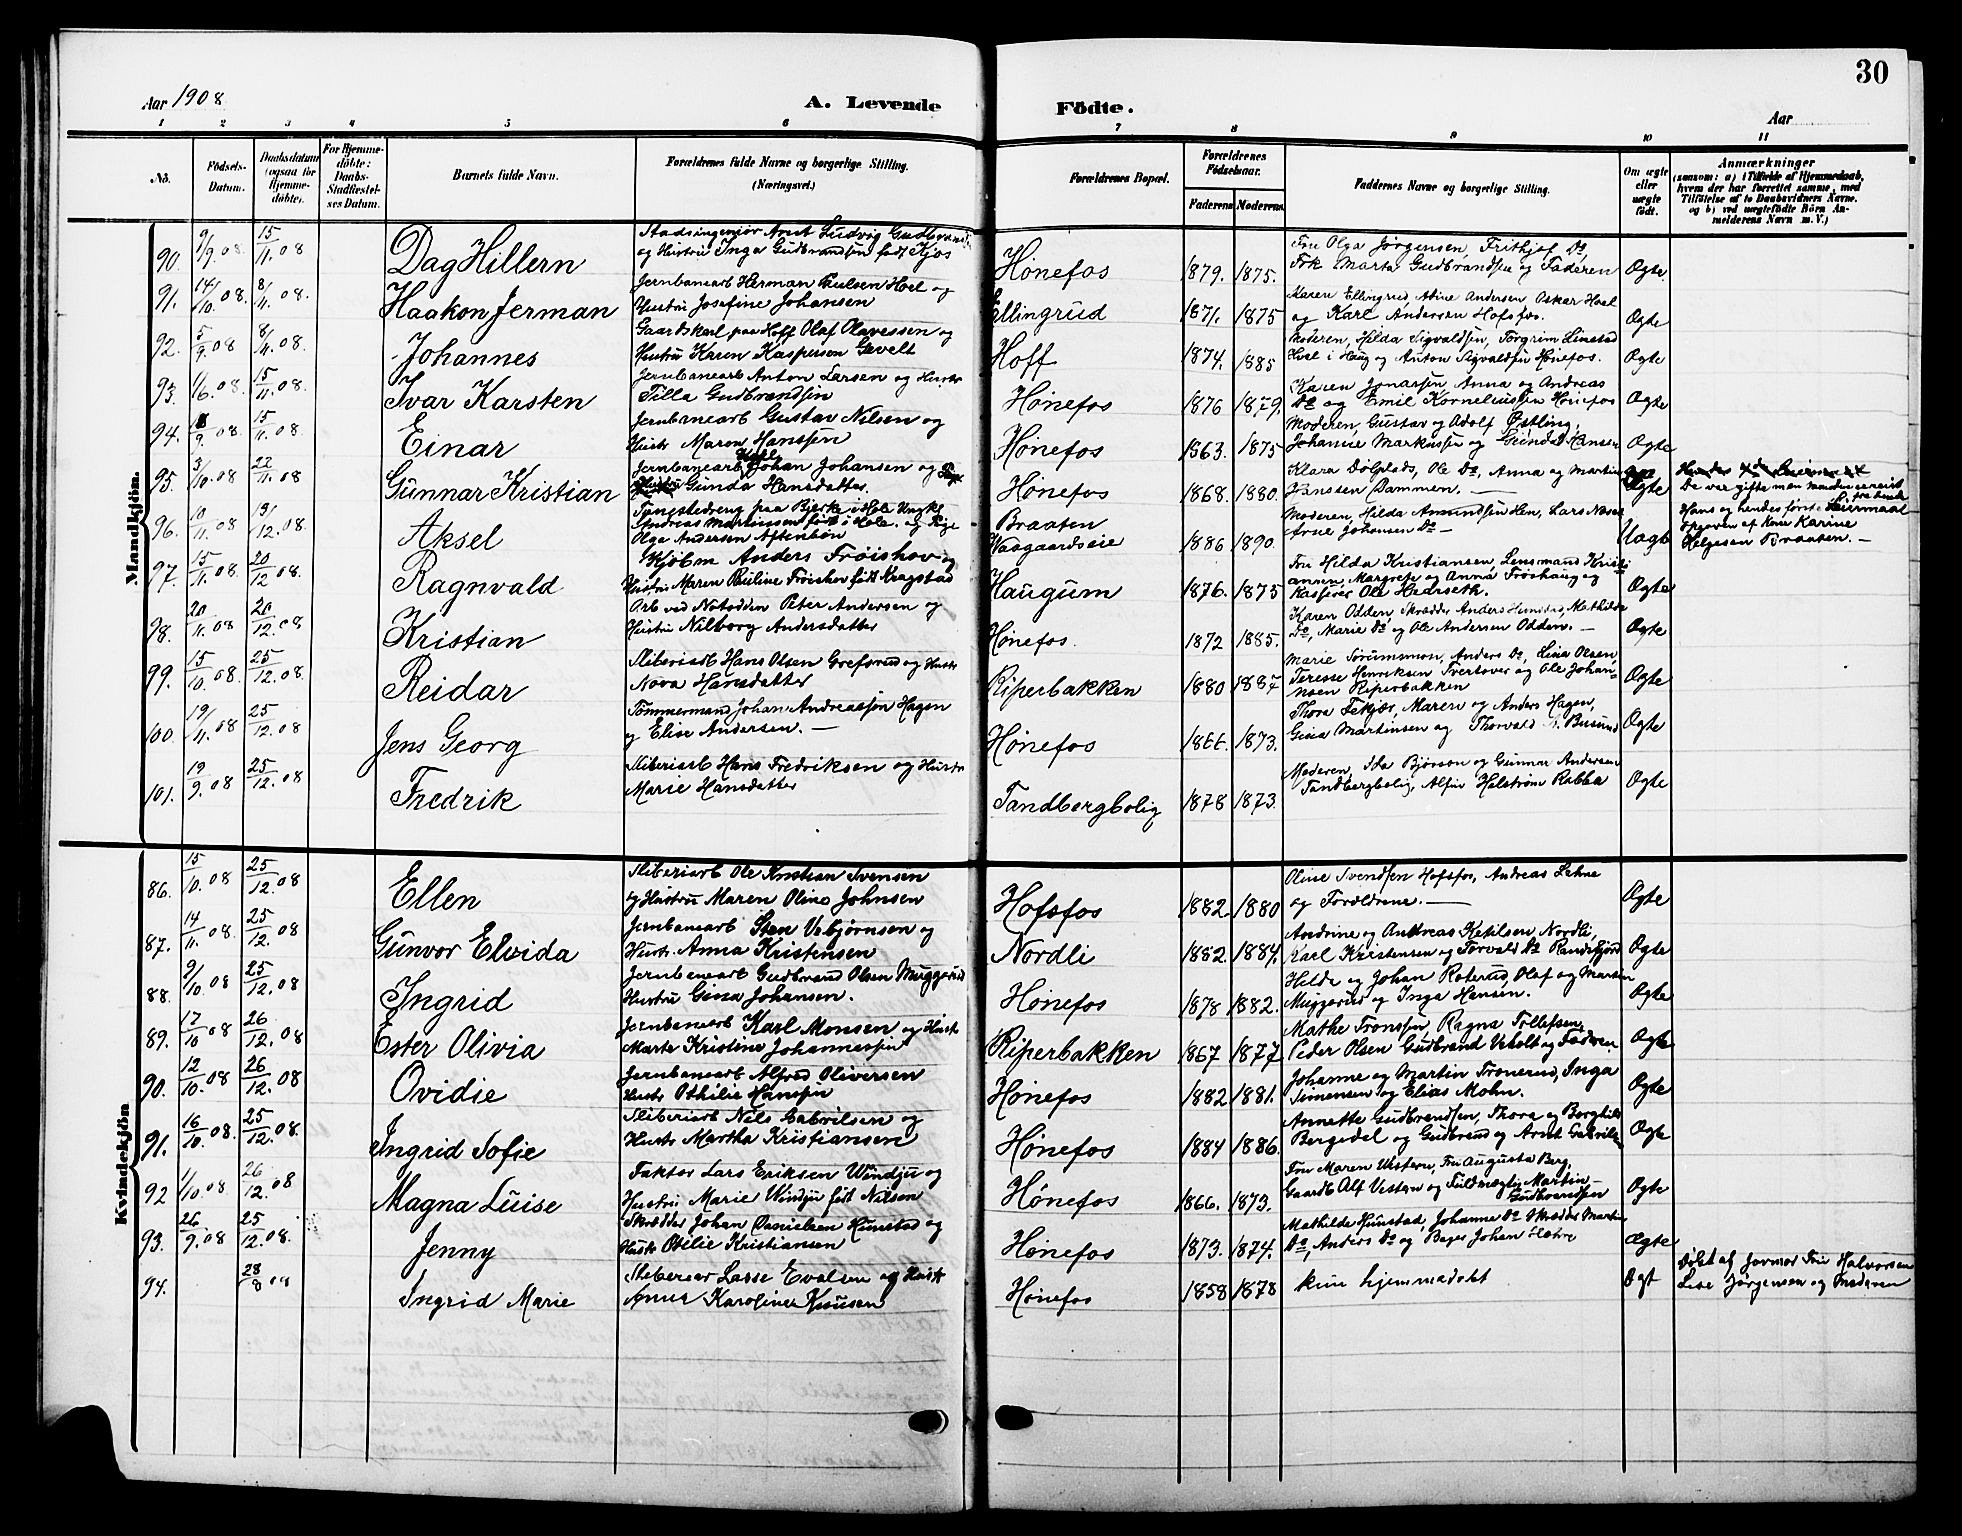 30
Aar 1908
A. Levende Födte.
Aar
1 2 3 4 5 6 7 8 9 10 11
No.
Födsels-Datum.
Daabsdatum (ogsaa for Hjemme-döbte).
For Hjemme-döbte: Daabs-Stadfæstel-ses Datum.
Barnets fulde Navn.
Forældrenes fulde Navne og borgerlige Stilling. (Næringsvei.)
Forældrenes Bopæl.
Forældrenes Födselsaar.
Faderens Moderens
Faddernes Navne og borgerlige Stilling.
Om ægte eller uægte födt.
Anmærkninger
(saasom: a) i Tilfælde af Hjemmedaab, hvem der har forrettet samme, med Tilföielse af to Daabsvidners Navne. og b) ved uægtefödte Börn An-melderens Navn m. V.)
Mandkjön.
90. 9/9 08 15/11 08 Dag Hillern
Stadsingeniør Arnt Ludvig Gudbrandsen
og Hustru Inga Gudbrandsen født Kjos
Hønefos 1879. 1875.
Fru Olga Jørgensen, Frithjof Do,
Frk Marta Gudbrandsen og Faderen
Ægte
91. 14/10 08. 8/11. 08. Haakon Jerman
Jernbanearb Herman Paulsen Hoel og
Hustru Josefine Johansen
Ellingrud 1871. 1875
Maren Ellingrud, Andersen Oskar Hoel
og Karl Andersen Hofsfos.
Ægte
92. 5/9. 08 8/11. 08. Johannes
Gaardskarl paa Hoff Olaf Olavessen og
Hustru Karen Kaspersen Gevelt
Hoff 1874. 1885
Moderen, Hilda Sigvaldsen, Torgrim Linstad
Hoel i Haug og Anton Sigvaldsen Hønefos.
Ægte
93. 1/6. 08. 15/11. 08. Ivar Karsten
Jernbanearb Anton Larsen og Hustr
Tilla Gudbrandsen
Hønefos 1876 1879.
Karen Jonassen, Anna og Andreas
Do og Emil Korneliussen Hønefos
Ægte
94. 9. 08. 15/11. 08. Einar
Jernbanearb Gustav Nilsen og
Hustr Maren Hanssen
Hønefos 1863. 1875
Moderen, Gustav og Adolf Østling,
Johanne Markussen og Gunda Hansen
Ægte
95. 3/10 08 22/11. 08 Gunnar Kristian
Jernbanearb Johan Johansen og
Gunda Hansdatter.
Hønefos 1868. 1880.
Klara Dølplads, Ole Do, Anna og Martin
Janssen Dammen. —
Ægte
De var gifte men
96. 10/11 08 13/12. 08 Aksel
paa Bjerke i Hole Ungkl
Andreas Martinssen født i Hole og Pige
Olga Andersen Aftenbøn
Braaten
Vaagaardseie 1886 1890.
Moderen, Hilda Amundsen Hen, Lars
Arne Johansen Do —
Uægt
Hans og hendes første Leiermaal
Opgaven af Karine
Helgesen Braaten. —
97. 15/11. 08. 20/12 08. Ragnvald
Kjøbm Anders Frøishov og
Hustru Maren Pauline Frøishov født Kragstad
Haugum 1876. 1875
Fru Hilda Kristiansen, Lensmand Kristi
ansen, Margrete og Anna Frøshaug og
Kasserer Ole Haarseth.
Ægte
98. 20/11. 08 20/12. 08 Kristian
Arb ved Notodden Peter Andersen og
Hustru Nilborg Andersdatter
Hønefos. 1872 1885.
Karen Odden, Skrædder Anders Hunstad, Mathilde
Do, Marie Do og Ole Andersen Odden. —
Ægte
99. 15/10. 08. 25/12. 08. Reidar
Sliberiarb Hans Olsen Grefsrud og Hustr
Nova Hansdatter
Riperbakken 1880 1887
Marie Sørumsmon, Anders Do, Lina Olsen
Teresse Henriksen Tvertover og Ole Johan-
nsen Riperbakken
Ægte
100. 19/11 08 25/12. 08 Jens Georg
Tømmermand Johan Andreassen Hagen
og Elise Andersen. —
Hønefos 1866. 1873.
Thora Fekjær, Maren og Anders Hagen,
Gina Martinsen og Thorvald A. Busund
Ægte
101. 19/9. 08 25/12. 08 Fredrik
Sliberiarb Hans Fredriksen og Hustr
Marie Hansdatter
Tandbergbolig 1878 1873.
Moderen, Ida Bjørson og Gunnar Andersen
Tandbergbolig, Alfin Helstrøm Rabba
Ægte
Kvindekjön
86. 15/10. 08 25/12. 08 Ellen
Sliberiarb Ole Kristian Svensen
og Hustru Maren Oline Johnsen
Hofsfos 1882 1880
Oline Svendsen Hofsfos, Andreas Lehne
og Forældrene. —
Ægte
87. 14/11. 08. 25/12. 08 Gunvor Elvida
Jernbanearb Sten Vebjørnsen og
Hustr. Anna Kristensen
Nordli 1882 1884.
Andrine og Andreas Ketilsen Nordli,
Karl Kristensen og Torvald Do Randsfjord
Ægte
88. 9/10. 08 25/12. 08 Ingrid
Jernbanearb Gudbrand Olsen Muggerud
Hustru Gina Johansen.
Hønefos 1878 1882.
Hilda og Johan Roterud, Olaf og Marten
Muggerud og Inga Hansen.
Ægte
89. 17/10 08 26/12. 08 Ester Olivia
Jernbanearb Karl Monsen og Hustr
Marte Kristine Johannessen
Riperbakken 1867 1877
Mathe Tronssen, Ragna Tollefsen,
Peder Olsen Gudbrand Veholt og Faderen.
Ægte
90. 12/10. 08 26/12. 08 Ovidie
Jernbanearb Alfred Oliversen
Hustr Othilie Hanssen
Hønefos 1882 1881.
Johanne og Martin Tronerud, Inga
Simensen og Elias Mohn.
Ægte
91. 16/10. 08. 25/12. 08. Ingrid Sofie
Sliberiarb Nils Gabrilsen og
Hustr Martha Kristiansen
Hønefos 1884 1886.
Annette Gudbrandsen, Thora og Borghild
Bergedal og Gudbrand og Arnt Gabrils
Ægte
92 1/10. 08 26/12. 08 Magna Luise
Faktor Lars Eriksen Windju og
Hustru Marie Windju født Nilsen
Hønefos 1866. 1873.
Fru Maren Vestern, Fru Augusta Berg
Gaardb Alf Vestern og Fuldmægtig Martin
Gudbrandsen
Ægte
93. 26/9. 08 25/12. 08. Jenny
Skrædder Johan Danielsen Hunstad og
Hustr Otilie Kristiansen
Hønefos 1873. 1874.
Mathilde Hunstad, Johanne Do Skrædder Martin
Do, Anders Do og Bager Johan Hæhre
Ægte
94. 28/8 08 Ingrid Marie
Sliberiar Lasse Evalsen og Hust
Anna Karoline Knusen
Hønefos 1858 1878
kun hjemmadøbt
Ægt
Døbt af Jormor Fru Halvorsen
Lise Jørgensen og Moderen